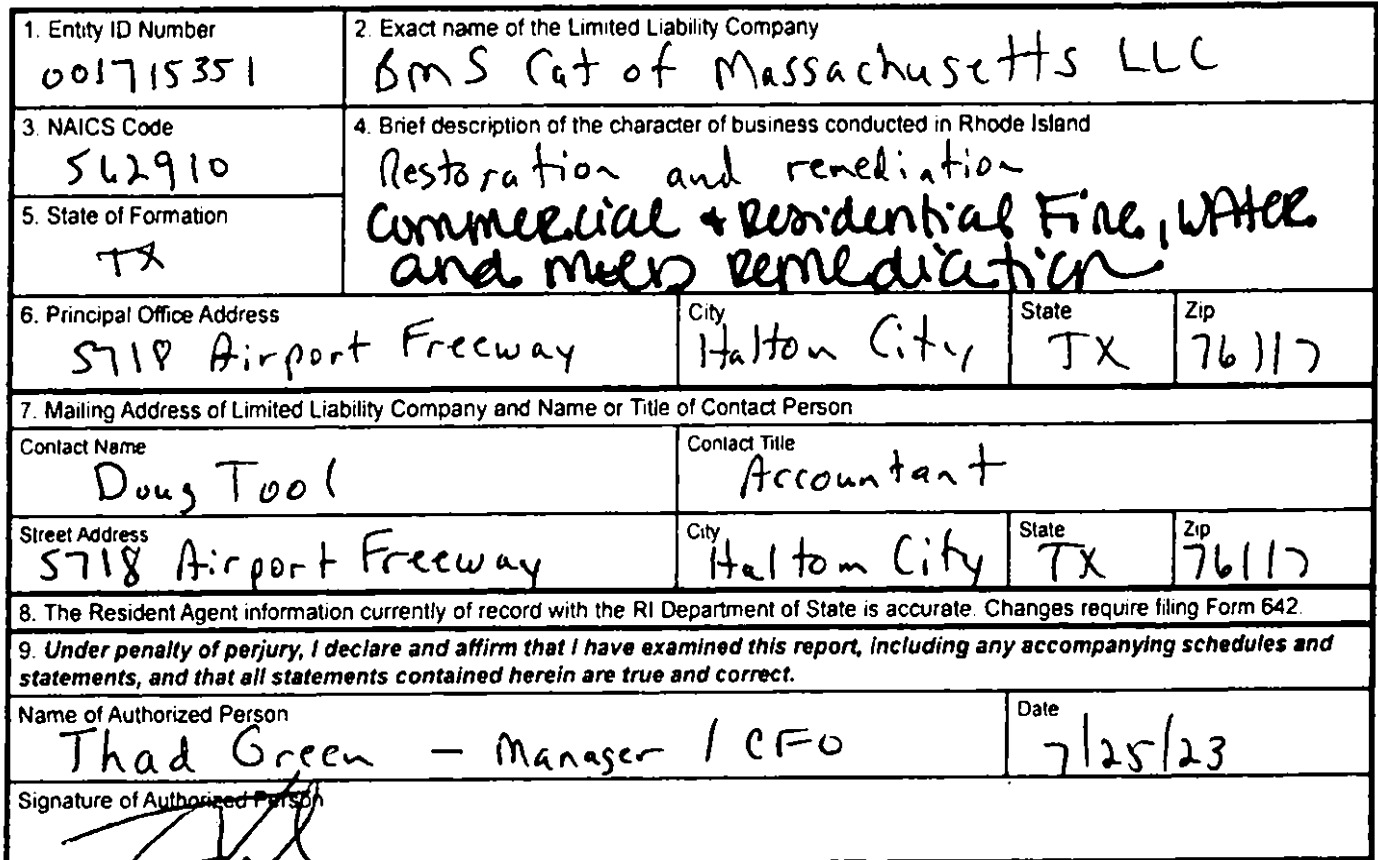 1. Entity ID Number
001715351
2. Exact name of the Limited Liability Company
BMS Cat of Massachusetts LLC
3. NAICS Code
562910
4. Brief description of the character of business conducted in Rhode Island
Restoration and remediation
commercial + Residential Fire, WATER
and mold remediation
5. State of Formation
TX
6. Principal Office Address
5718 Airport Freeway
City
Halton City
State
TX
Zip
76117
7. Mailing Address of Limited Liability Company and Name or Title of Contact Person
Contact Name
Doug Tool
Contact Title
Accountant
Street Address
5718 Airport Freeway
City
Haltom City
State
TX
Zip
76117
8. The Resident Agent information currently of record with the RI Department of State is accurate. Changes require filing Form 642.
9. Under penalty of perjury, I declare and affirm that I have examined this report, including any accompanying schedules and
statements, and that all statements contained herein are true and correct.
Name of Authorized Person
Thad Green - Manager / CFO
Date
7/25/23
Signature of Authorized Person